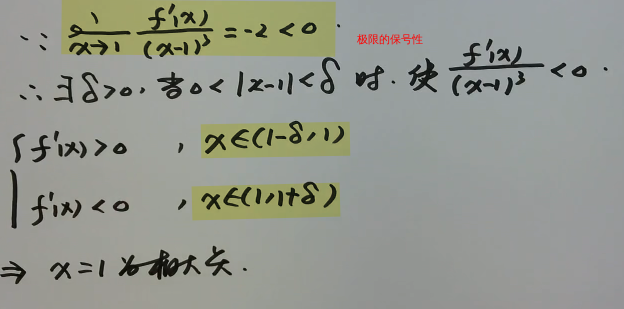 ∵ lim x→1 f'(x)/(x-1)³ = -2 < 0 .
极限的保号性
∴ ∃δ>0, 当0<|x-1|<δ 时. 使 f'(x)/(x-1)³ < 0 .
{ f'(x)>0 , x∈(1-δ,1)
f'(x)<0 , x∈(1,1+δ)
⇒ x=1 为极大